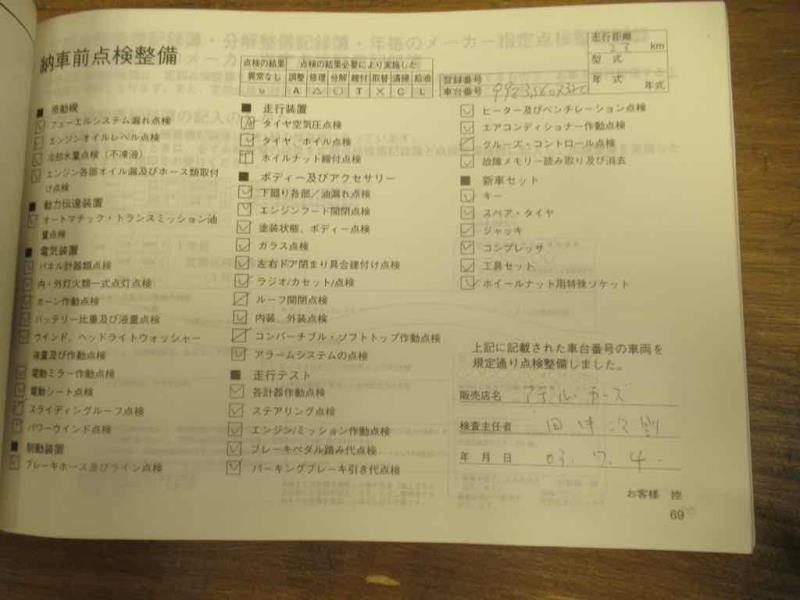 納車前点検整備
点検の結果
異常なし
レ
点検の結果必要により実施した
調整 修理 分解 締付 取替 清掃 給油
A △ ○ T × C L
走行距離
km
型 式
年 式
年式
登録番号
車台番号
■ 原動機
フューエルシステム漏れ点検
エンジンオイルレベル点検
冷却水量点検(不凍液)
エンジン各部オイル漏及びホース類取付
け点検
■ 動力伝達装置
オートマチック・トランスミッション油
量点検
■ 電気装置
パネル計器類点検
内・外灯火類一式点灯点検
ホーン作動点検
バッテリー比重及び液量点検
ウインド、ヘッドライトウォッシャー
液量及び作動点検
電動ミラー作動点検
電動シート点検
スライディングルーフ点検
パワーウインド点検
■ 制動装置
ブレーキホース及びライン点検
■ 走行装置
タイヤ空気圧点検
タイヤ、ホイル点検
ホイルナット締付点検
■ ボディー及びアクセサリー
下廻り各部/油漏れ点検
エンジンフード開閉点検
塗装状態、ボディー点検
ガラス点検
左右ドア閉まり具合建付け点検
ラジオ/カセット/点検
ルーフ開閉点検
内装、外装点検
コンバーチブル・ソフトトップ作動点検
アラームシステムの点検
■ 走行テスト
各計器作動点検
ステアリング点検
エンジン/ミッション作動点検
ブレーキペダル踏み代点検
パーキングブレーキ引き代点検
ヒーター及びベンチレーション点検
エアコンディショナー作動点検
クルーズ・コントロール点検
故障メモリー読み取り及び消去
■ 新車セット
キー
スペア・タイヤ
ジャッキ
コンプレッサ
工具セット
ホイールナット用特殊ソケット
上記に記載された車台番号の車両を
規定通り点検整備しました。
販売店名
検査主任者
年 月 日 03. 7. 4.
お客様 控
69